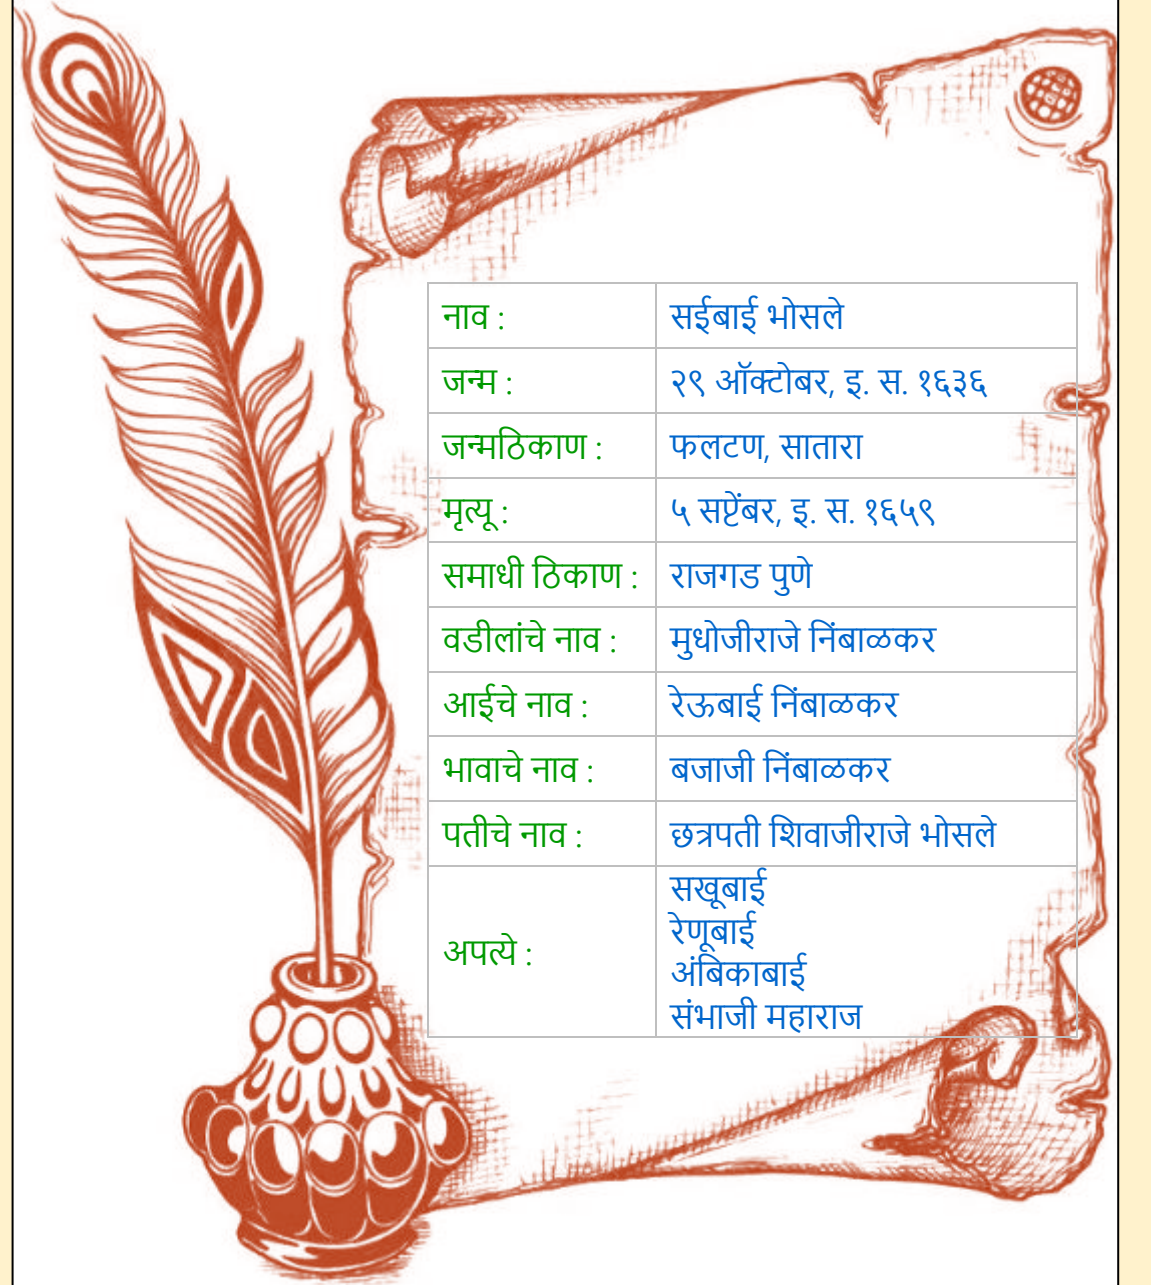 नाव : सईबाई भोसले
जन्म : २९ ऑक्टोबर, इ. स. १६३६
जन्मठिकाण : फलटण, सातारा
मृत्यू : ५ सप्टेंबर, इ. स. १६५९
समाधी ठिकाण : राजगड पुणे
वडीलांचे नाव : मुधोजीराजे निंबाळकर
आईचे नाव : रेऊबाई निंबाळकर
भावाचे नाव : बजाजी निंबाळकर
पतीचे नाव : छत्रपती शिवाजीराजे भोसले
अपत्ये : सखूबाई
रेणूबाई
अंबिकाबाई
संभाजी महाराज